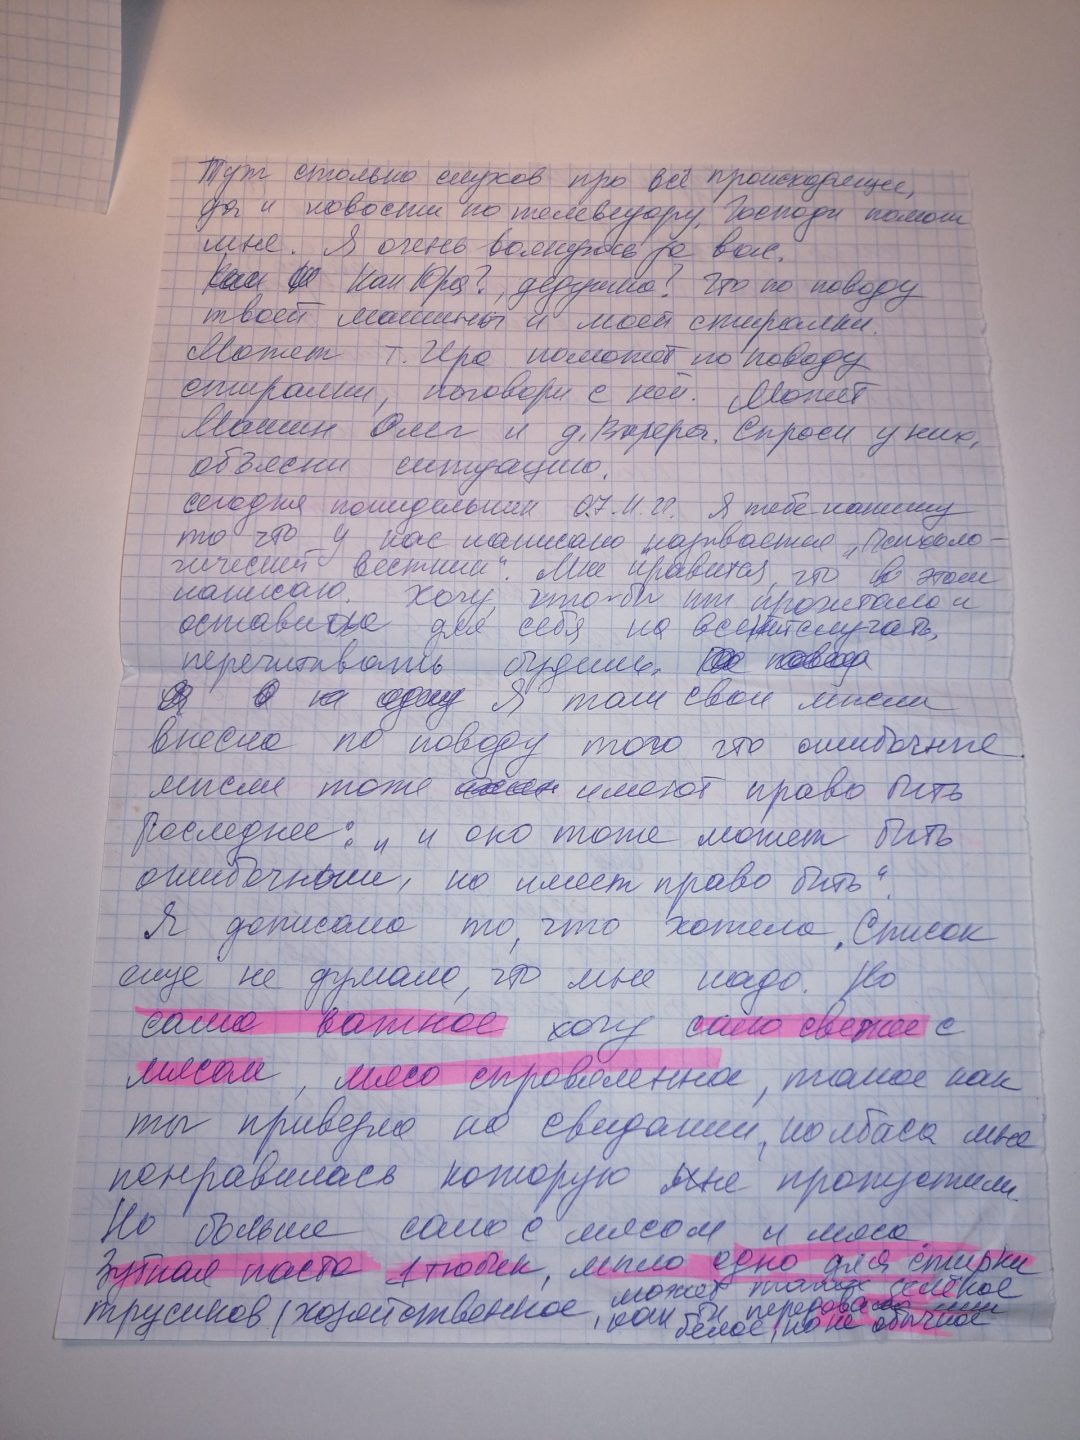 Тут столько слухов про всё происходящее,
да и новости по телевизору, Господи помоги
мне. Я очень волнуюсь за вас.
Как Юра?, дедушка? Что по поводу
твоей машины и моей стиралки.
Может т. Ира поможет по поводу
стиралки, поговори с ней. Может
Машин Олег и д. Валера. Спроси у них,
объясни ситуацию.
сегодня понидельник 07.11.22. Я тебе напишу
то что у нас написано называется „Психоло-
гический вестник“. Мне нравится, что в этом
написано. Хочу, что-бы ты прочитала и
оставила для себя на всякий случай,
перечитывать будишь.
Я там свои мысли
внесла по поводу того что ошибочные
мысли тоже имеют право быть
Последнее: „и оно тоже может быть
ошибочным, но имеет право быть“.
Я дописала то, что хотела. Список
еще не думала, что мне надо. Но
само важное хочу сало свежее с
мясом, мясо стровяленное, такое как
ты привезла на свидании, колбаса мне
понравилась которую мне пропустили.
Но больше сало с мясом и мясо
Зубная паста 1 тюбик, мыло одно для стирки
трусиков (хозяйственное, может только зелёное
как бы
белое, но не обычное